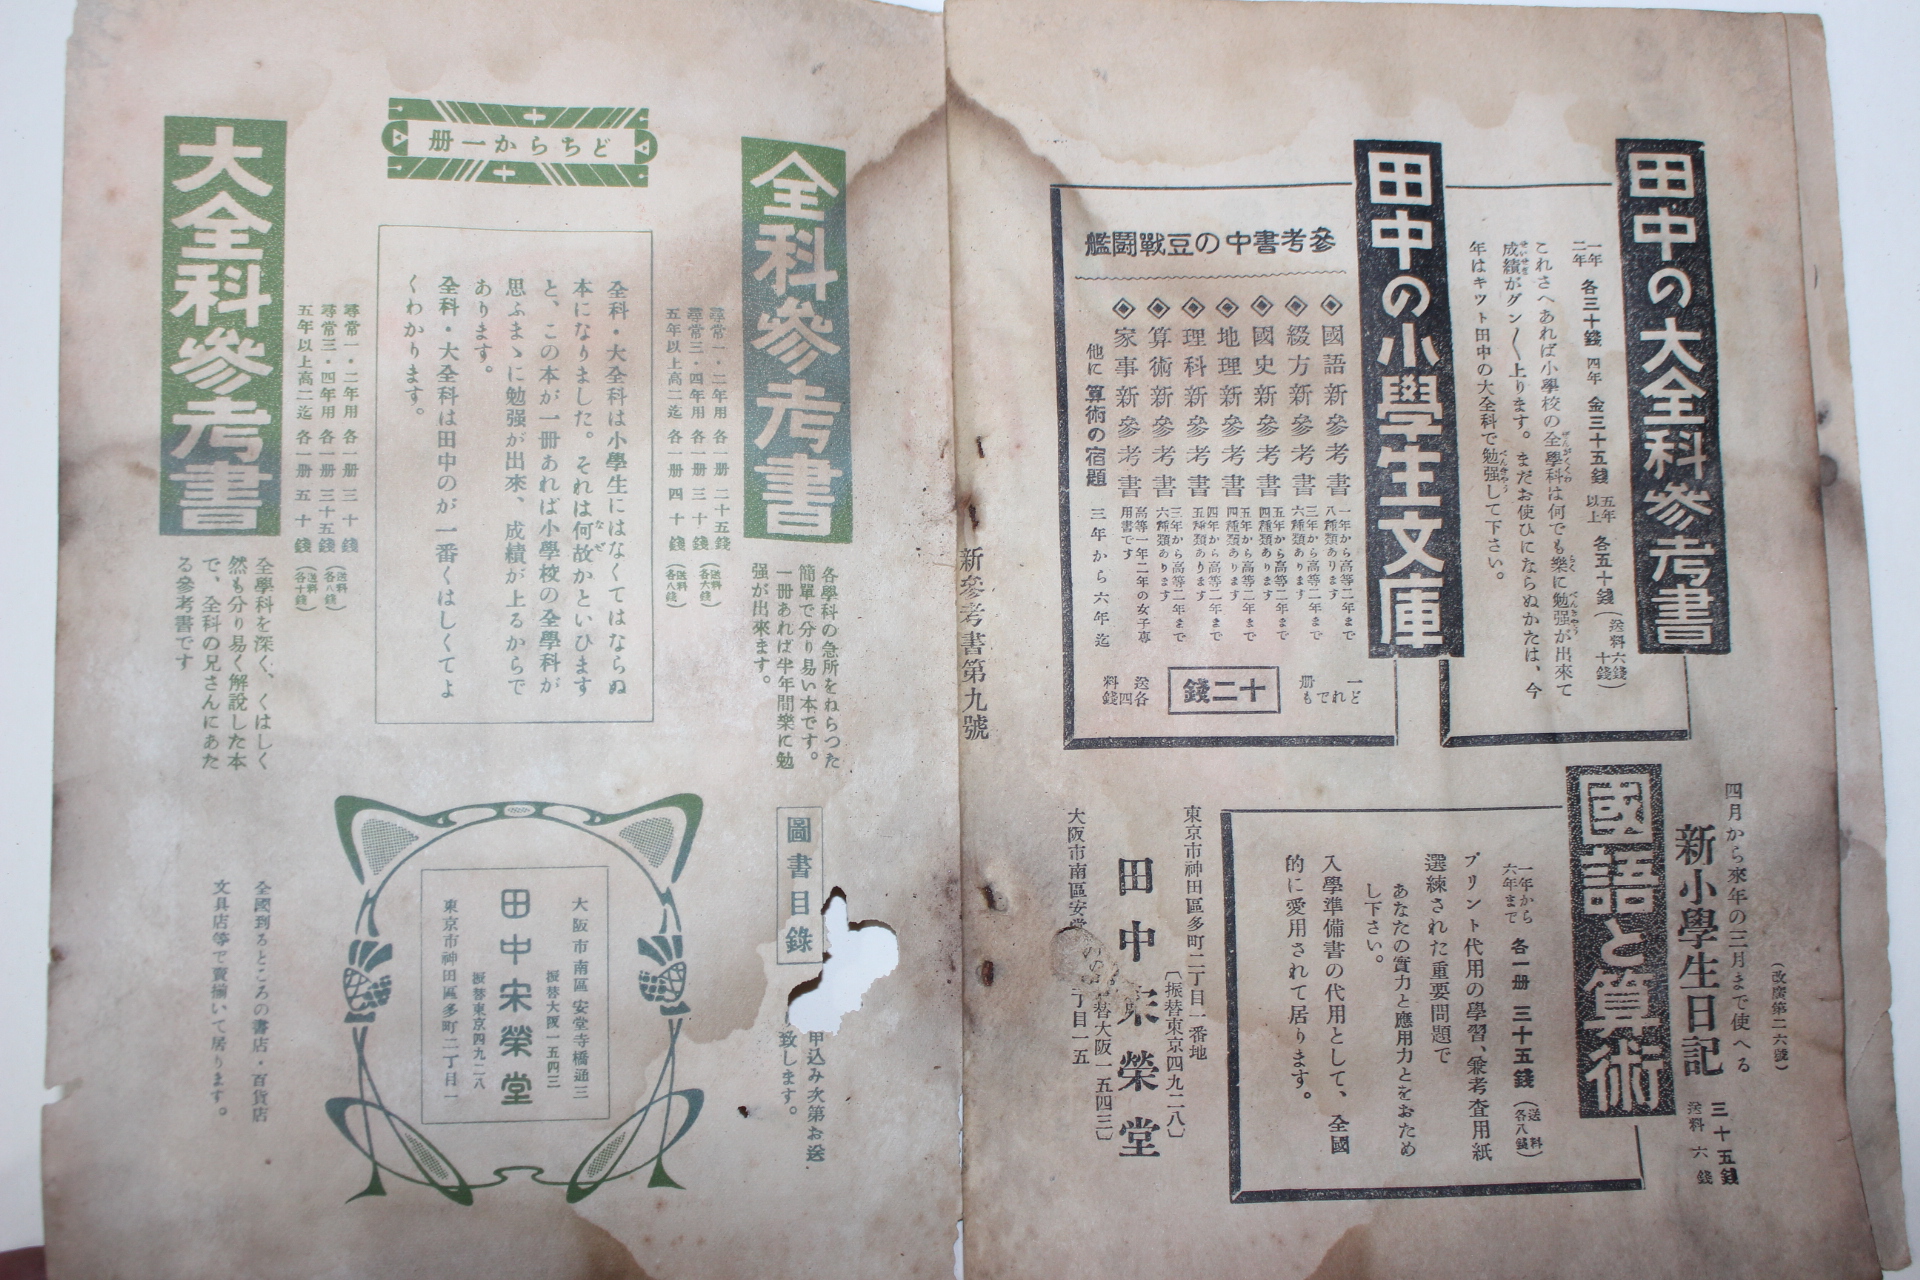 田中の大全科參考書
一年二年 各三十錢 四年 金三十五錢 五年以上 各五十錢(送料六錢十錢)
これさへあれば小學校の全學科は何でも樂に勉强が出來て
成績がグン〱上ります。まだお使ひにならぬかたは、今
年はキット田中の大全科で勉强して下さい。
田中の小學生文庫
參考書中の豆戰鬪艦
◈國語新參考書 一年から高等二年まで八種類あります
◈綴方新參考書 三年から高等二年まで六種類あります
◈國史新參考書 五年から高等二年まで四種類あります
◈地理新參考書 五年から高等二年まで四種類あります
◈理科新參考書 四年から高等二年まで五種類あります
◈算術新參考書 三年から高等二年まで六種類あります
◈家事新參考書 高等一年二年の女子專用書です
他に 算術の宿題 三年から六年迄
どれでも一册
十二錢
送料各四錢
四月から來年の三月まで使へる
新小學生日記 三十五錢 送料六錢
(改廣第二六號)
國語と算術
一年から六年まで 各一册 三十五錢(送料各八錢)
プリント代用の學習、兼考査用紙
選練された重要問題で
あなたの實力と應用力とをおため
し下さい。
入學準備書の代用として、全國
的に愛用されて居ります。
東京市神田區多町二丁目一番地
〔振替東京四九二八〕
田中宋榮堂
替大阪一五四三〕
大阪市南區安堂
丁目一五
新參考書第九號
全科參考書
尋常一・二年用 各一册 二十五錢
尋常三・四年用 各一册 三十錢(送料各六錢)
五年以上高二迄 各一册 四十錢(送料各八錢)
各學科の急所をねらつた
簡單で分り易い本です。
一冊あれば半年間樂に勉
强が出來ます。
どちらか一册
全科・大全科は小學生にはなくてはならぬ
本になりました。それは何故かといひます
と、この本が一冊あれば小學校の全學科が
思ふまゝに勉强が出來、成績が上るからで
あります。
全科・大全科は田中のが一番くはしくてよ
くわかります。
大全科參考書
尋常一・二年用 各一册 三十錢
尋常三・四年用 各一册 三十五錢(送料各八錢)
五年以上高二迄 各一册 五十錢(送料各十錢)
全學科を深く、くはしく
然も分り易く解説した本
で、全科の兄さんにあた
る參考書です
圖書目錄
申込み次第お送
致します。
大阪市南區安堂寺橋通三
振替大阪一五四三
田中宋榮堂
振替東京四九二八
東京市神田區多町二丁目一
全國到るところの書店・百貨店
文具店等で賣揃いて居ります。